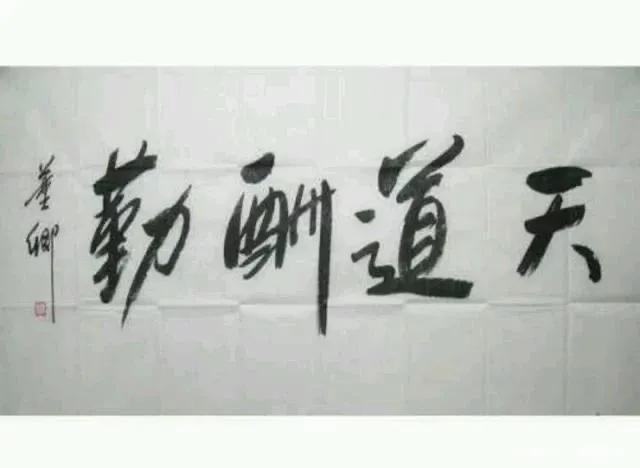 天道酬勤
董卿